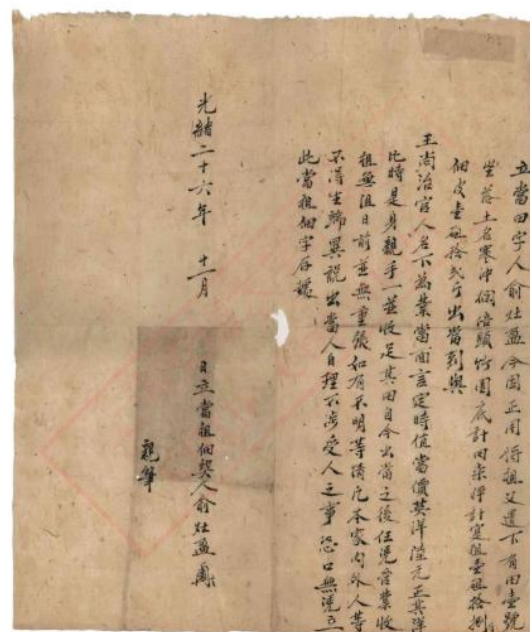 立當田字人俞灶盈今因正用將祖父遺下有田壹號
坐落土名寒冲個培頭竹園底計田柒秤計寔租壹砠拾捌
佃皮壹砠拾弍斤出當到與
王尚治官人名下為業當面言定時值當價英洋陸元正其洋
比時是身親手一並收足其田自今出當之後任凭官業收
租無阻日前並無重張如有不明等情凡本家內外人等
不得生端異說出當人自理不涉受人之事恐口無凭立
此當租佃字存據
光緒二十六年 十一月
日立當租佃契人俞灶盈
親筆